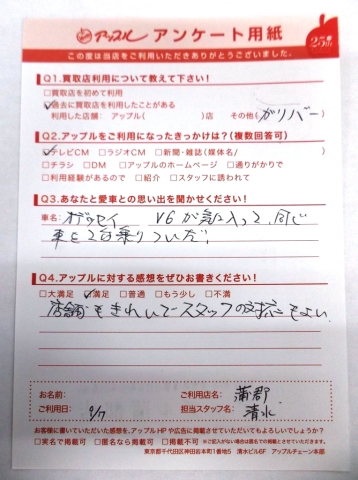 アップル アンケート用紙
25th
この度は当店をご利用いただきありがとうございました。
Q1.買取店利用について教えて下さい!
□買取店を初めて利用
☑過去に買取店を利用したことがある
利用した店舗: アップル( )店 その他(ガリバー)
Q2.アップルをご利用になったきっかけは?(複数回答可)
☑テレビCM □ラジオCM □新聞・雑誌(媒体名/ )
□チラシ □DM □アップルのホームページ □通りがかりで
□利用経験があるので □紹介 □スタッフに誘われて
Q3.あなたと愛車との思い出を聞かせてください!
車名: オデッセイ V6が気に入って、同じ
車を2台乗りついだ!
Q4.アップルに対する感想をぜひお書きください!
□大満足 ☑満足 □普通 □もう少し □不満
店舗もきれいでスタッフの対応もよい
お名前: ご利用店名: 蒲郡
ご利用日: 9/7 担当スタッフ名: 清水
お客様に書いていただいた感想を、アップルHPや広告に掲載させていただいてもよろしいでしょうか?
□実名で掲載可 □匿名なら掲載可 □掲載不可 ※ご記入がない場合は匿名での掲載とさせていただきます。
東京都千代田区神田岩本町1番地5 清水ビル6F アップルチェーン本部